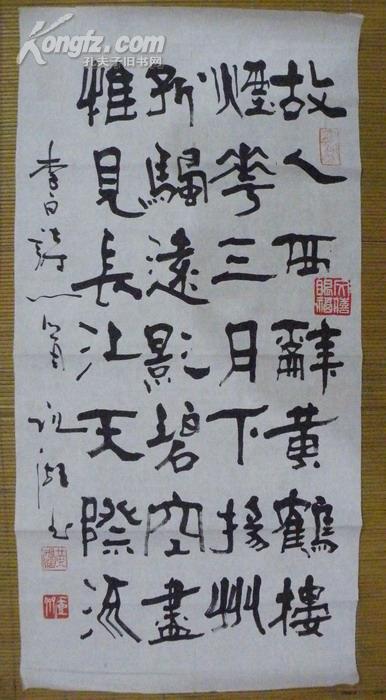 Kongfz.com
孔夫子旧书网
故人西辭黄鶴樓
煙華三月下揚州
孤颿遠影碧空盡
惟見長江天際流
李白詩一首